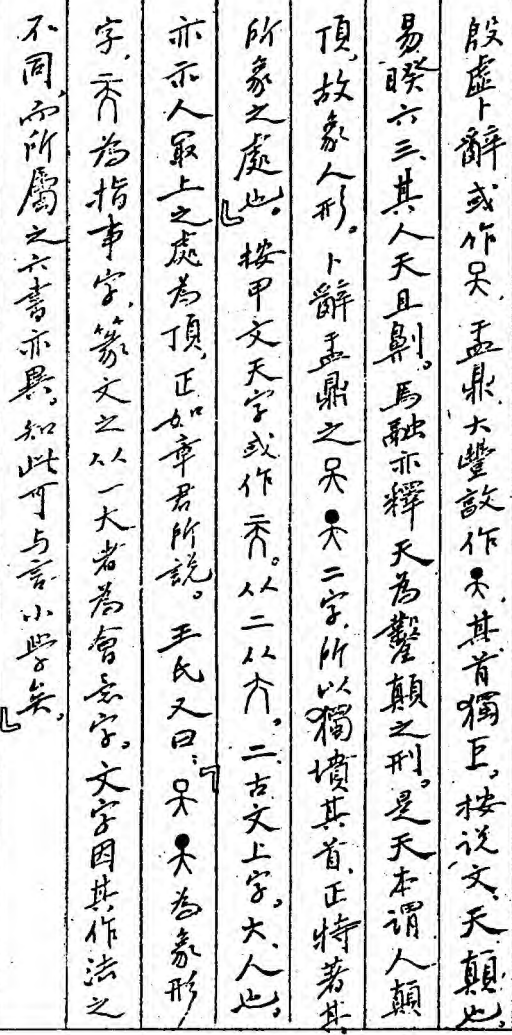 殷虛卜辭或作𠀘,盂鼎、大豐敦作𠀡,其首獨巨。按说文,天,顛也。
易睽六三,其人天且劓。馬融亦釋天為鑿顛之刑。是天本謂人顛
頂,故象人形。卜辭盂鼎之二字,所以獨墳其首,正特著其
所象之處也。』按甲文天字或作。从二从大。二,古文上字。大,人也。
亦示人最上之處為頂,正如章君所説。王氏又曰:『為象形
字,為指事字,篆文之从一大者為會意字。文字因其作法之
不同,而所屬之六書亦異。知此可与言小學矣。』